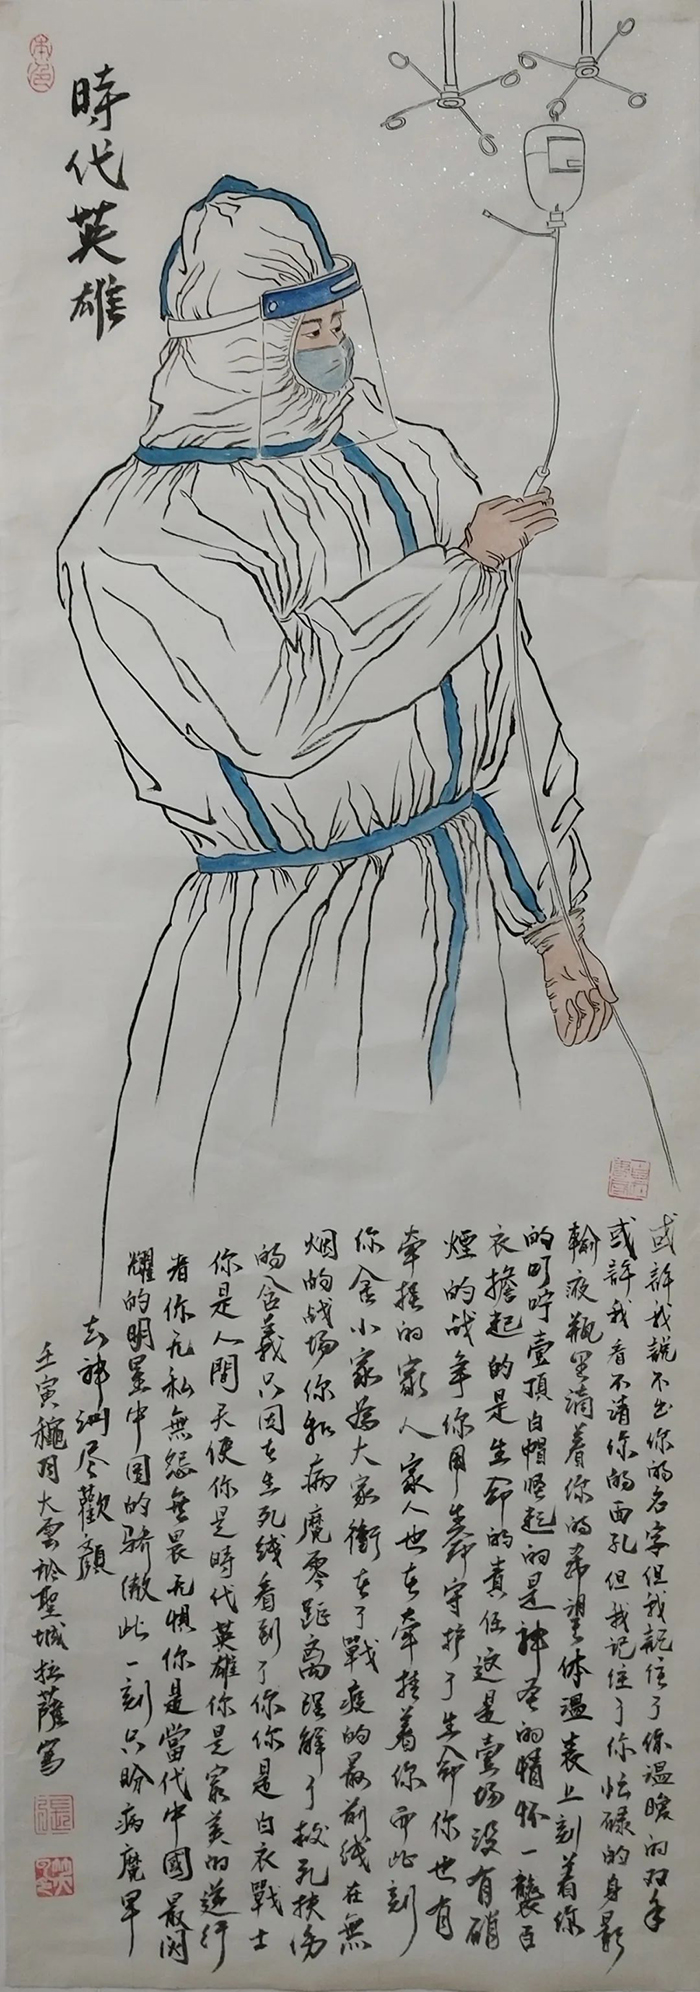 本色
時代英雄
或許我說不出你的名字但我記住了你温暖的双手
或許我看不清你的面孔但我记住了你忙碌的身影
輸液瓶里滴着你的希望体温表上刻着你
的叮咛壹頂白帽撑起的是神圣的情怀一襲白
衣擔起的是生命的責任这是壹场没有硝
煙的战争你用生命守护了生命你也有
牵挂的家人家人也在牵挂着你而此刻
你舍小家為大家衝在了戰疫的最前线在無
烟的战场你和病魔零距离理解了救死扶伤
的含義只因在生死线看到了你你是白衣戰士
你是人間天使你是時代英雄你是最美的逆行
者你无私無怨無畏无惧你是當代中國最闪
耀的明星中国的骄傲此一刻只盼病魔早
去神洲尽歡顔
壬寅龝月大雲於聖城拉薩寫